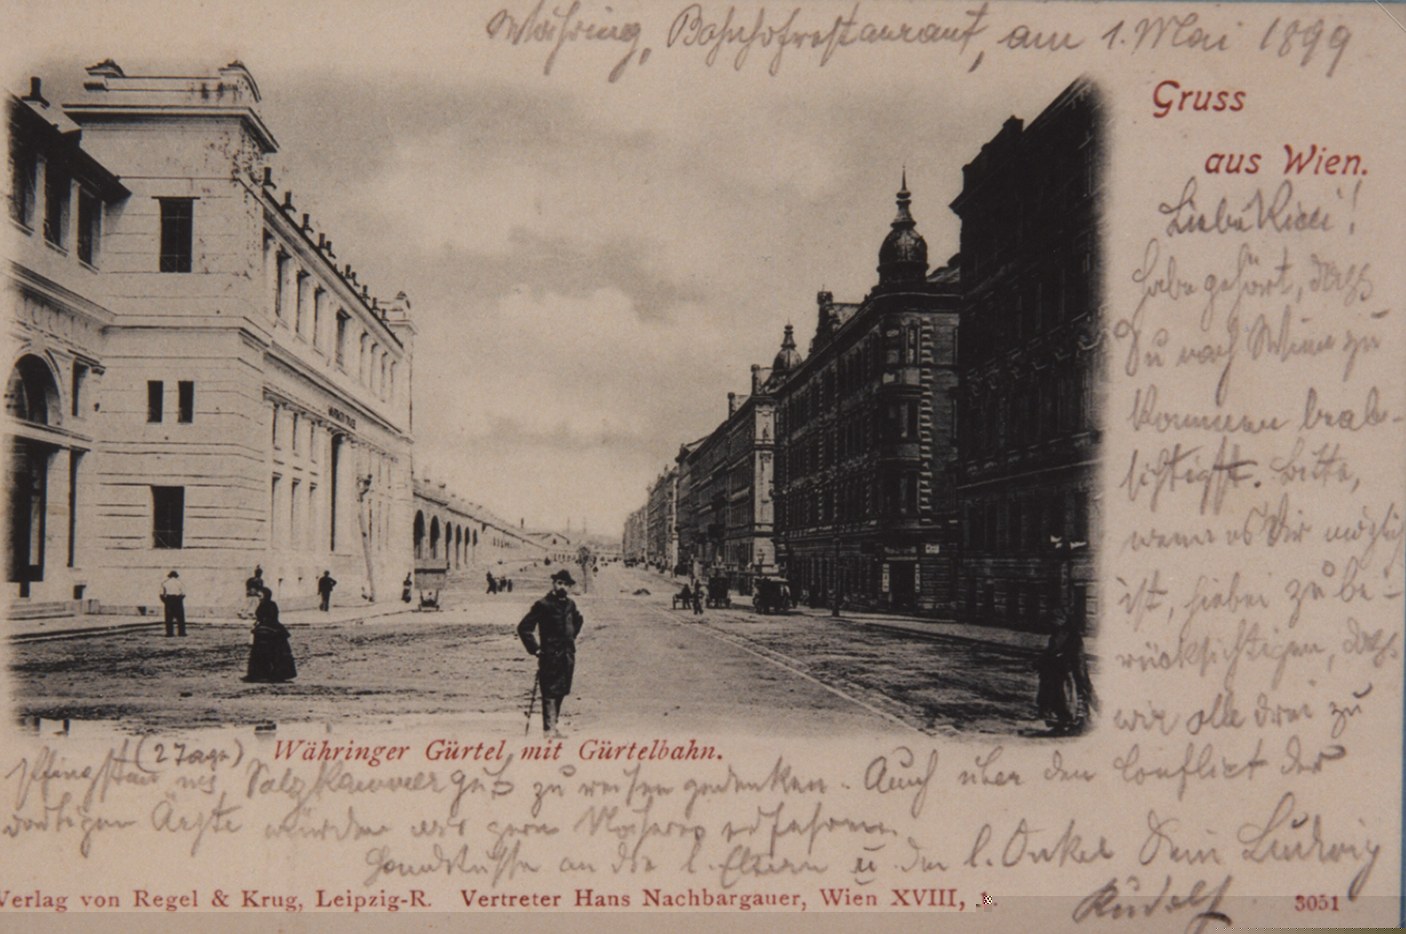 Währing, Bahnhofrestaurant, am 1. Mai 1899
Gruss
aus Wien.
Liebe Ricci!
habe gehört, dass
Du nach Wien zu
kommen beab-
sichtigst. Bitte,
wenn es Dir möglich
ist, hiebei zu be-
rücksichtigen, dass
wir alle drei zu
Pfingsten (2 Tage) ins Salzkammergut zu reisen gedenken. Auch über den Conflict der
Währinger Gürtel mit Gürtelbahn.
dortigen Ärzte würden wir gern Näheres erfahren.
Handküsse an die l. Eltern u. den l. Onkel Dein Ludwig
Rudolf
Verlag von Regel & Krug, Leipzig-R. Vertreter Hans Nachbargauer, Wien XVIII,
3051